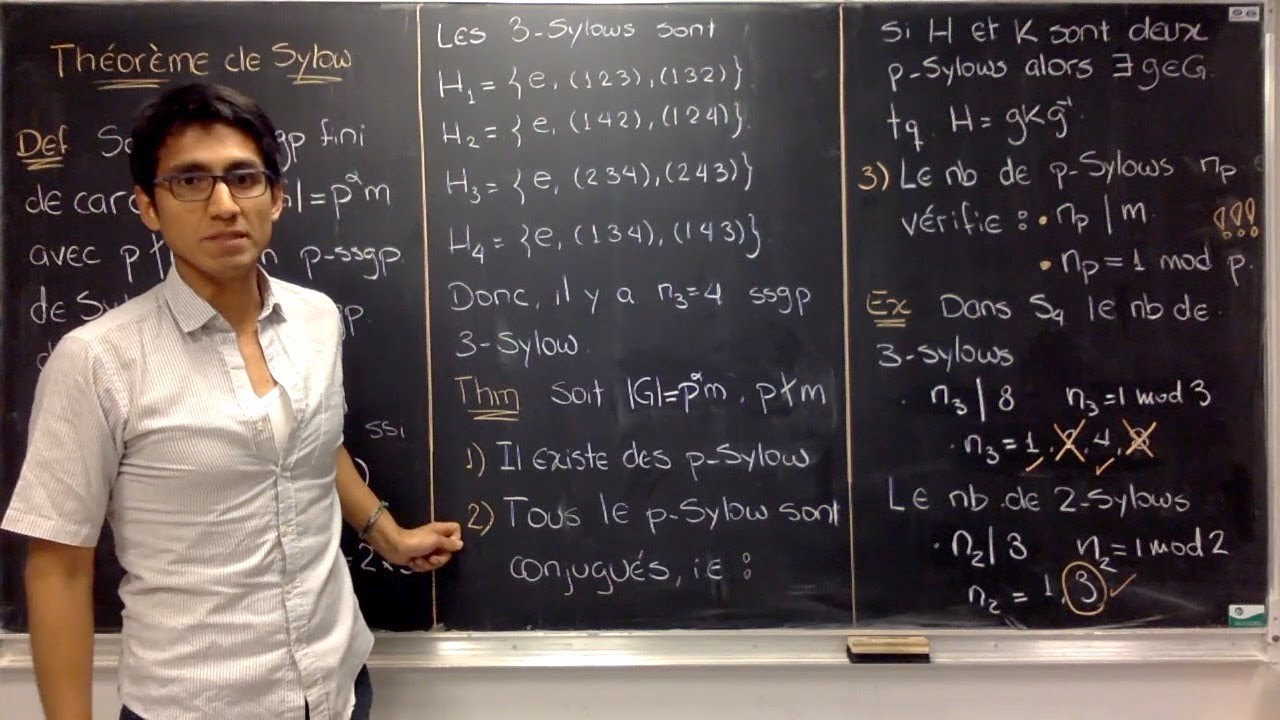 Théorème de Sylow
Def gp fini
de car |=p^α m
avec p p-ssgp
de
ssi
Les 3-Sylows sont
H₁ = {e, (123), (132)}
H₂ = {e, (142), (124)}.
H₃ = {e, (234), (243)}
H₄ = {e, (134), (143)}.
Donc, il y a n₃=4 ssgp
3-Sylow.
Thm Soit |G|=p^α m, p∤m
1) Il existe des p-Sylow
2) Tous le p-Sylow sont
conjugués, i.e :
Si H et K sont deux
p-Sylows alors ∃ g∈G
tq. H = gKg⁻¹
3) Le nb de p-Sylows nₚ
vérifie : • nₚ | m !!!
• nₚ = 1 mod p.
Ex Dans S₄ le nb de
3-sylows
• n₃ | 8 n₃ = 1 mod 3
• n₃ = 1, 2, 4, 8
Le nb de 2-Sylows
• n₂ | 3 n₂ = 1 mod 2
n₂ = 1, 3